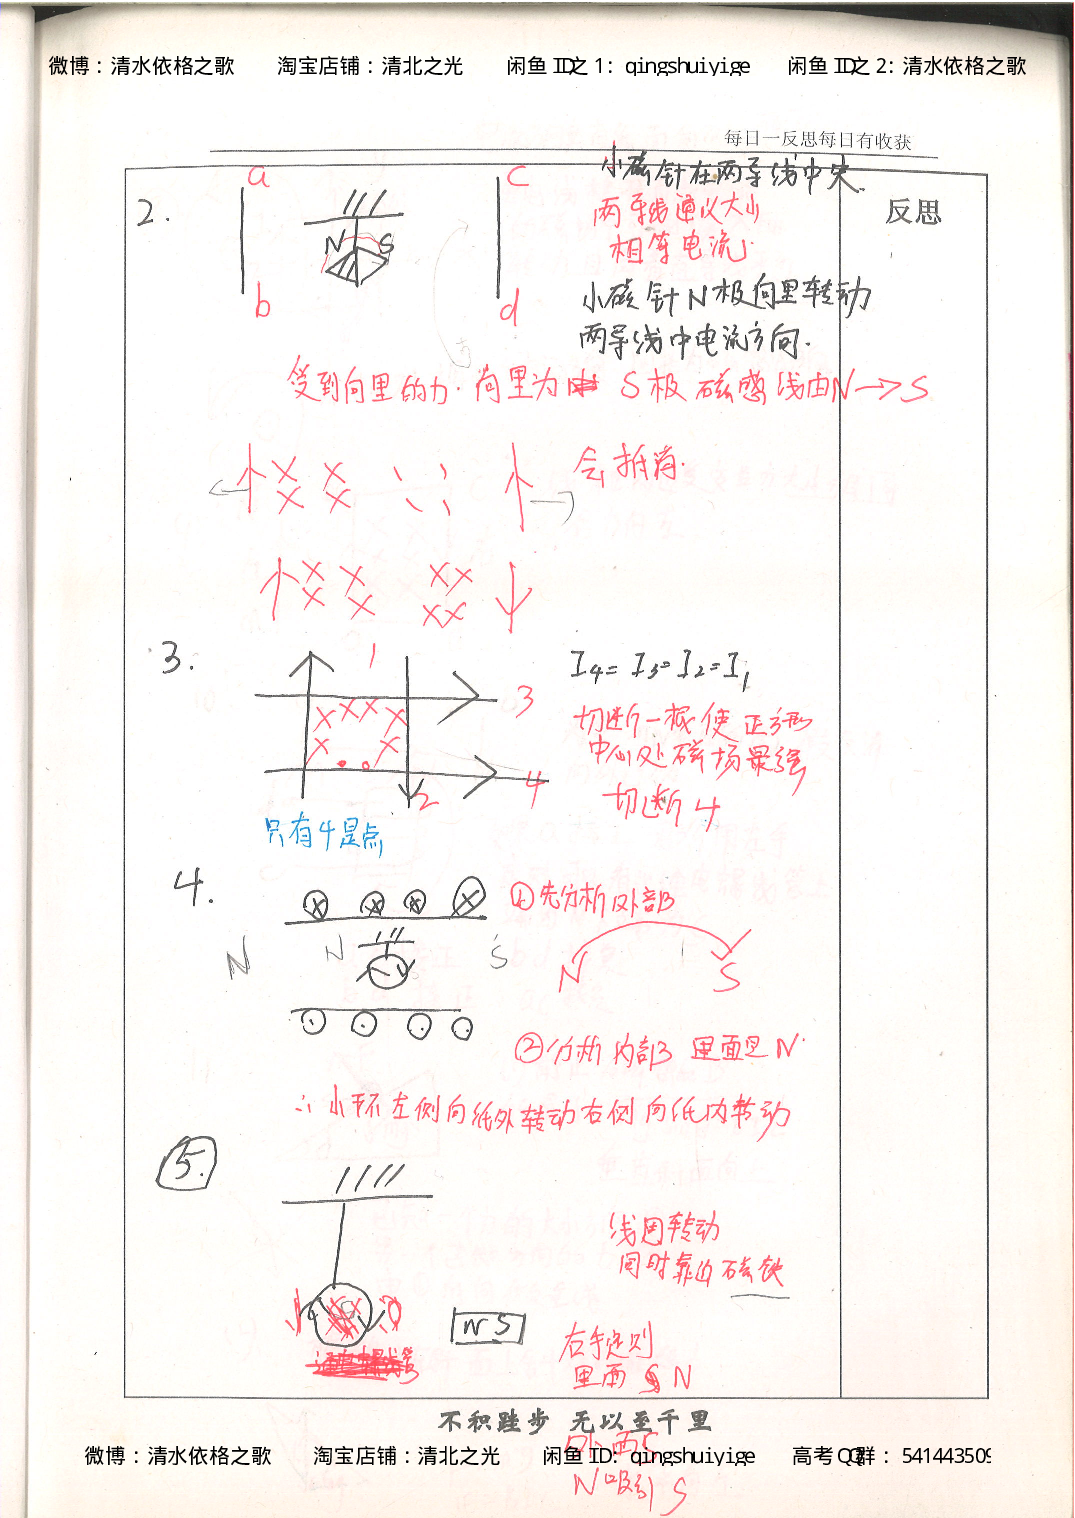 微博：清水依格之歌 淘宝店铺：清北之光 闲鱼 ID之 1: qingshuiyige 闲鱼 ID之 2: 清水依格之歌
每日一反思每日有收获
反思
2.
a c
N S
b d
小磁针在两导线中央.
两导线通以大小
相等电流.
小磁针N极向里转动
两导线中电流方向.
受到向里的力. 向里为 S极 磁感线由N→S
会抵消.
3.
1
3
4
2
I4= I3= I2= I1
切断一根使正方形
中心处磁场最强
切断 4
只有4是点
4.
N N S
①先分析外部
N S
②分析内部 里面是N.
∴小环左侧向纸外转动右侧向纸内转动
5.
N S
线圈转动
同时靠近磁铁
右手定则
里面 N
外面S
N吸引S
不积跬步 无以至千里
微博：清水依格之歌 淘宝店铺：清北之光 闲鱼 ID: qingshuiyige 高考 QQ群：541443509